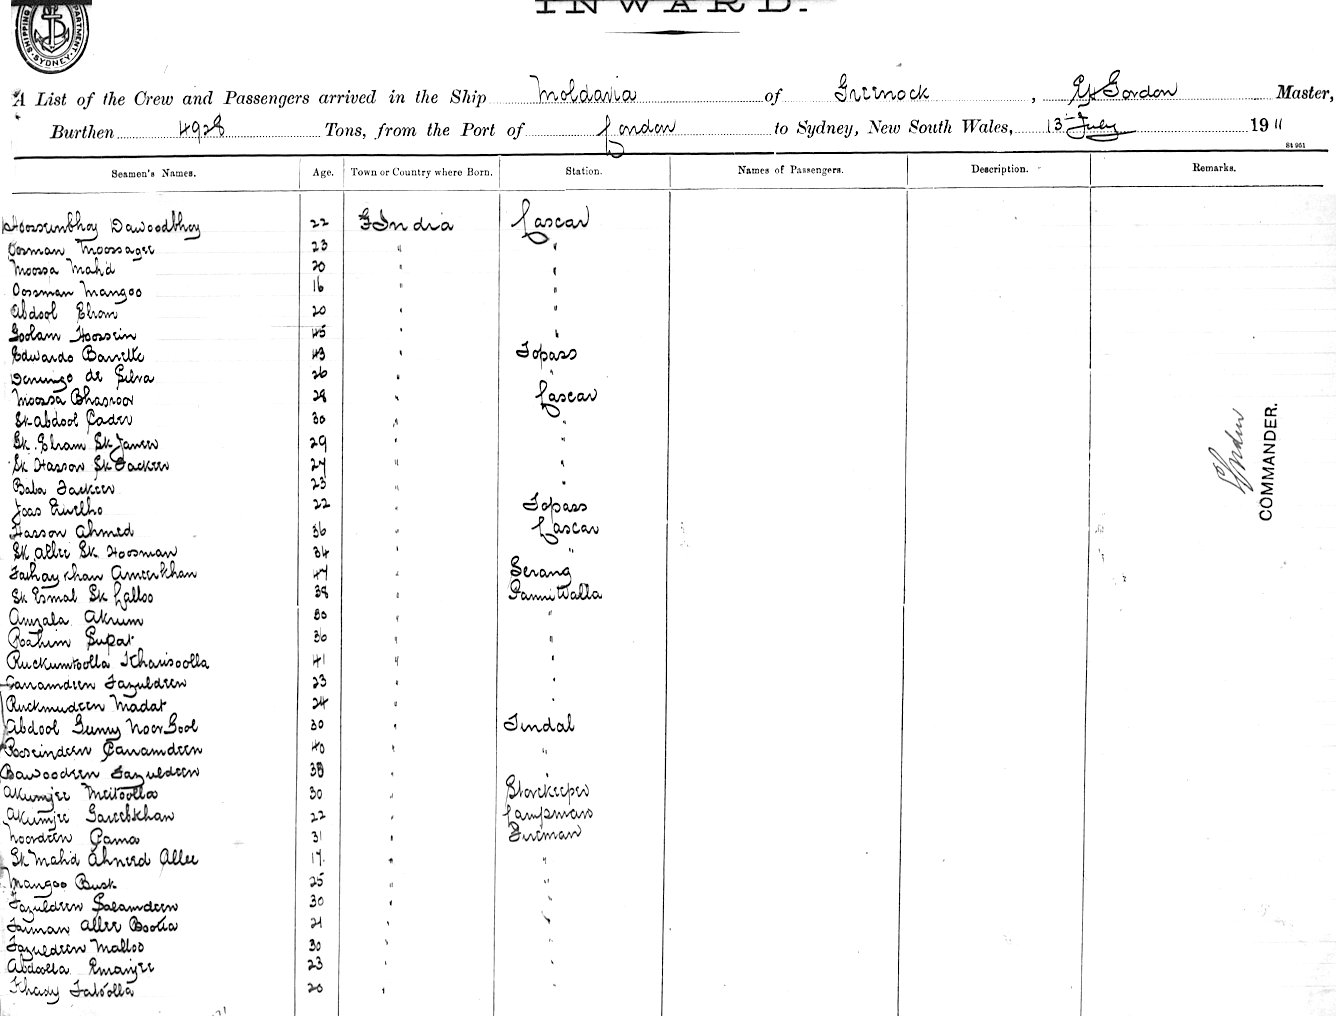 SHIPPING DEPARTMENT. SYDNEY.
INWARD.
A List of the Crew and Passengers arrived in the Ship Moldavia of Greenock, Gordon Master,
Burthen 4928 Tons, from the Port of London to Sydney, New South Wales, 13 July 1911
S4 951
Seamen's Names. Age. Town or Country where Born. Station. Names of Passengers. Description. Remarks.
Hooseinbhoy Dawoodbhoy 22 India Lascar
Oosman Moossagee 23 " "
Moosa Mahd 20 " "
Oosman Mangoo 16 " "
Abdool Ebram 20 " "
Goolam Hoosein 45 " "
Edwardo Barrette 43 " Topass
Domingo de Silva 26 "
Moosa Bhasroor 29 " Lascar
Sk Abdool Cader 30 " "
Sk. Ebram Sk Janoo 29 " "
Sk Hasson Sk Fackeer 24 " "
Baba Fackeer 23 " "
Joao 22 " Topass
Hasson Ahmed 36 " Lascar
Sk Allie Sk Hoosman 34 " "
Fathay Khan Ameerkhan 47 " Serang
Sk Esmal Sk Lalloo 38 " Panniwalla
Amzala Akrum 30 " "
Roahim Supat 36 " "
Ruckumtoolla Kharisoolla 41 " "
Canamdeen Fazuldeen 23 " "
Ruckmudeen Madat 24 " "
Abdool Gunny Noor Gool 30 " Tindal
Rooseindeen Canamdeen 40 " "
Dawoodeen Fazuldeen 38 " "
Akumjee Meitoolla 30 " Storekeeper
Akumjee Gareebkhan 22 " Lampman
Noordeen Cama 31 " Fireman
Sk Mahd Ahmed Allee 19 " "
Mangoo Busk 25 " "
Fazuldeen Salamdeen 30 " "
Faiman Allee Bootia 21 " "
Fazuldeen Malloo 30 " "
Abdoolla Emanjee 23 " "
Khady Fatoolla 20 " "
COMMANDER.